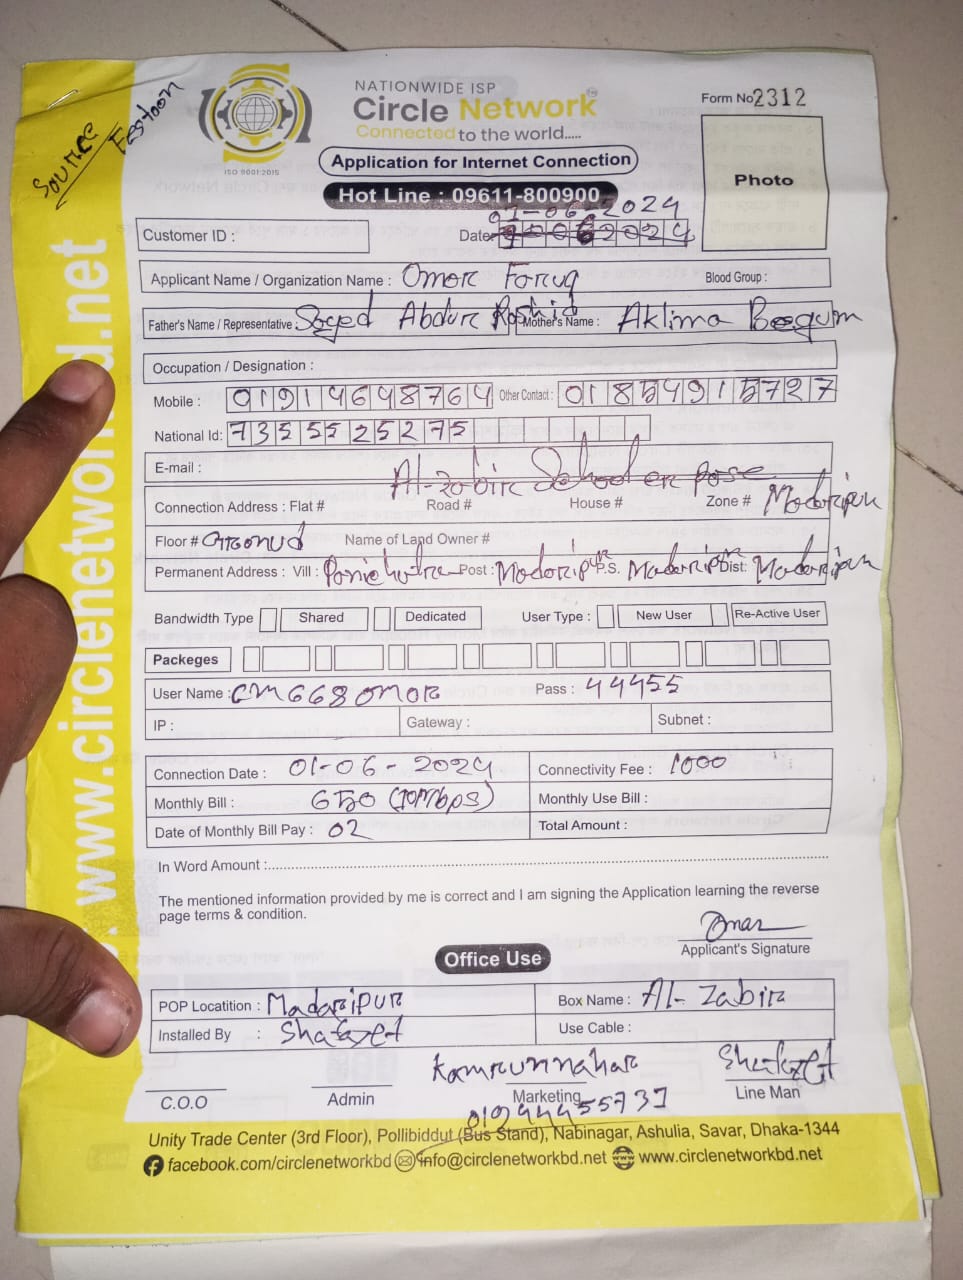 Source
Festoon
NATIONWIDE ISP
Circle Network
Connected to the world.....
ISO 9001:2015
Form No 2312
Application for Internet Connection
Hot Line : 09611-800900
Photo
01-06-2024
Customer ID :
Date
Applicant Name / Organization Name : Omor Faruq Blood Group :
Father's Name / Representative : Sayed Abdur Rashid Mother's Name : Aklima Beegum
Occupation / Designation :
Mobile : 01914648764 Other Contact : 01854915727
National Id: 7355525275
E-mail :
Al-zabir School er pose
Connection Address : Flat # Road # House # Zone # Madaripur
Floor # Ground Name of Land Owner #
Permanent Address : Vill : Post : Madaripur P.S. Madaripur Dist: Madaripur
Bandwidth Type Shared Dedicated User Type : New User Re-Active User
Packeges
User Name : CM668omor Pass : 44455
IP : Gateway : Subnet :
Connection Date : 01-06-2024 Connectivity Fee : 1000
Monthly Bill : 650 (10Mbps) Monthly Use Bill :
Date of Monthly Bill Pay : 02 Total Amount :
In Word Amount :
The mentioned information provided by me is correct and I am signing the Application learning the reverse
page terms & condition.
Omar
Applicant's Signature
Office Use
POP Locatition : Madaripur Box Name : Al-Zabir
Installed By : Shafayet Use Cable :
Kamrunnahar Shafayet
C.O.O Admin Marketing Line Man
01944455737
Unity Trade Center (3rd Floor), Pollibiddut (Bus Stand), Nabinagar, Ashulia, Savar, Dhaka-1344
facebook.com/circlenetworkbd info@circlenetworkbd.net www.circlenetworkbd.net
www.circlenetworkbd.net